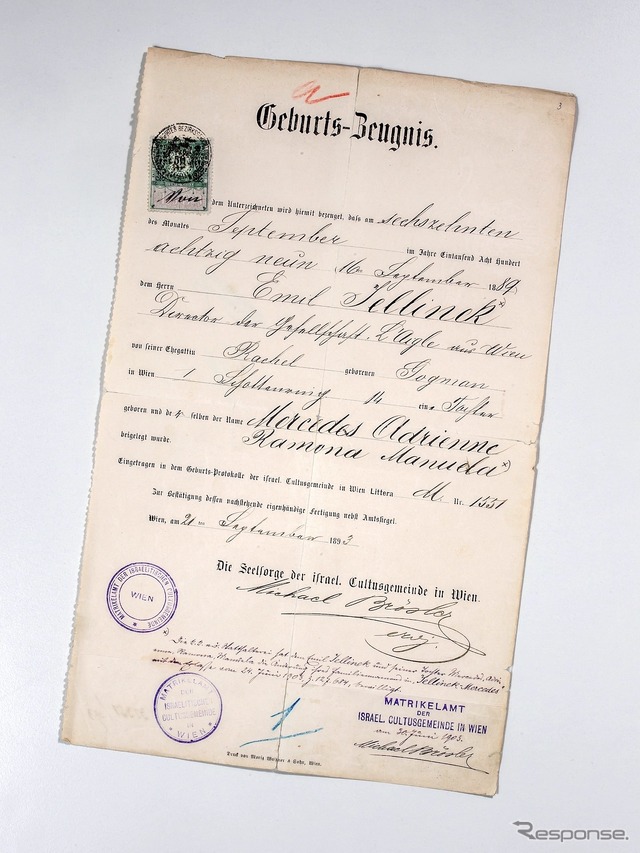 3
Geburts-Zeugnis.
Von
dem Unterzeichneten wird hiemit bezeuget, dass am sechszehnten
des Monates September im Jahre Eintausend Acht Hundert
achtzig neun 16. September 1889.
dem Herrn Emil Jellinek x)
Director der Gesellschaft L'Aigle aus Wien
von seiner Ehegattin Rachel geborenen Gogman
in Wien 1 Schottenring 14 eine Tochter
geboren und de r selben der Name Mercédes Adrienne
beigelegt wurde. Ramona Manuela x)
Eingetragen in dem Geburts-Protokolle der israel. Cultusgemeinde in Wien Littera M. Nr. 1331
Zur Bestätigung dessen nachstehende eigenhändige Fertigung nebst Amtssiegel.
Wien, am 21 September 1893
Die Seelsorge der israel. Cultusgemeinde in Wien.
Michael
MATRIKELAMT DER ISRAELITISCHEN CULTUSGEMEINDE
WIEN
x) Die k.k. n.ö. Statthalterei hat dem Emil Jellinek und seiner Tochter Mercédès, Adri-
enne, Ramona, Manuela die Änderung ihres Familiennamens in "Jellinek-Mercédès"
mit dem Erlasse vom 24. Juni 1903 bewilligt.
MATRIKELAMT
DER
ISRAELITISCHE
CULTUSGEMEINDE
IN
WIEN
MATRIKELAMT
DER
ISRAEL. CULTUSGEMEINDE IN WIEN
am Juni 1903.
Michael
1
Druck von Moriz & Sohn, Wien.
Response.